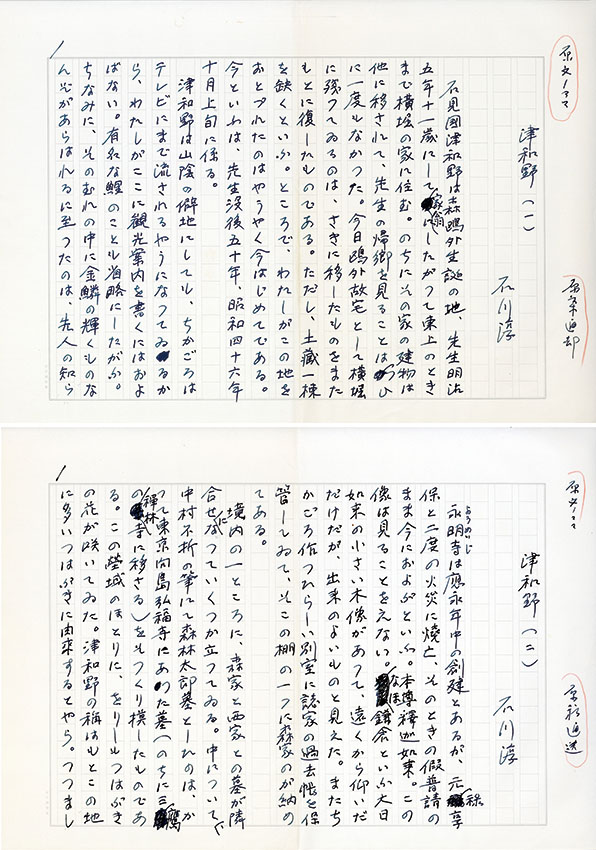 原文ノママ
津和野（一）
原稿返却
石川淳
石見國津和野は森鷗外生誕の地、先生明治
五年十一歳にして家翁にしたがつて東上のとき
まで横堀の家に住む。のちにその家の建物は
他に移されて、先生の帰郷を見ることはつひ
に一度もなかつた。今日鷗外故宅として横堀
に残つてゐるのは、さきに移したものをまた
もとに復したものである。ただし、土藏一棟
を缺くといふ。ところで、わたしがこの地を
おとづれたのはやうやく今はじめてである。
今といふは、先生没後五十年、昭和四十六年
十月上旬に係る。
津和野は山陰の僻地にしても、ちかごろは
テレビにまで流されるやうになつてゐるか
ら、わたしがここに観光案内を書くにはおよ
ばない。有名な鯉のことも省略にしたがふ。
ちなみに、そのむれの中に金鱗の輝くものな
んぞがあらはれるに至つたのは、先人の知ら
原文ノママ
津和野（二）
原稿返送
石川淳
永明寺は應永年中の創建とあるが、元禄享
ようめいじ
保と二度の火災に燒亡、そのときの假普請の
まま今におよぶといふ。本尊釋迦如來。この
像は見ることをえない。なほ鎌倉といふ大日
如來の小さい木像があつて、遠くから仰いだ
だけだが、出來のよいものと見えた。またち
かごろ作つたらしい別室に諸家の過去帳を保
管してゐて、そこの棚の一つに森家のが納め
てある。
境内の一ところに、森家と西家との墓が隣
合せになつていくつか立つてゐる。中について
中村不折の筆にて森林太郎墓としたのは、か
つて東京向島弘福寺にあつた墓（のちに三鷹
の禪林寺に移さる）をそつくり模したものであ
る。この塋域のほとりに、をりしもつはぶき
の花が咲いてゐた。津和野の稱はもとこの地
に多いつはぶきに由來するとやら。つつまし